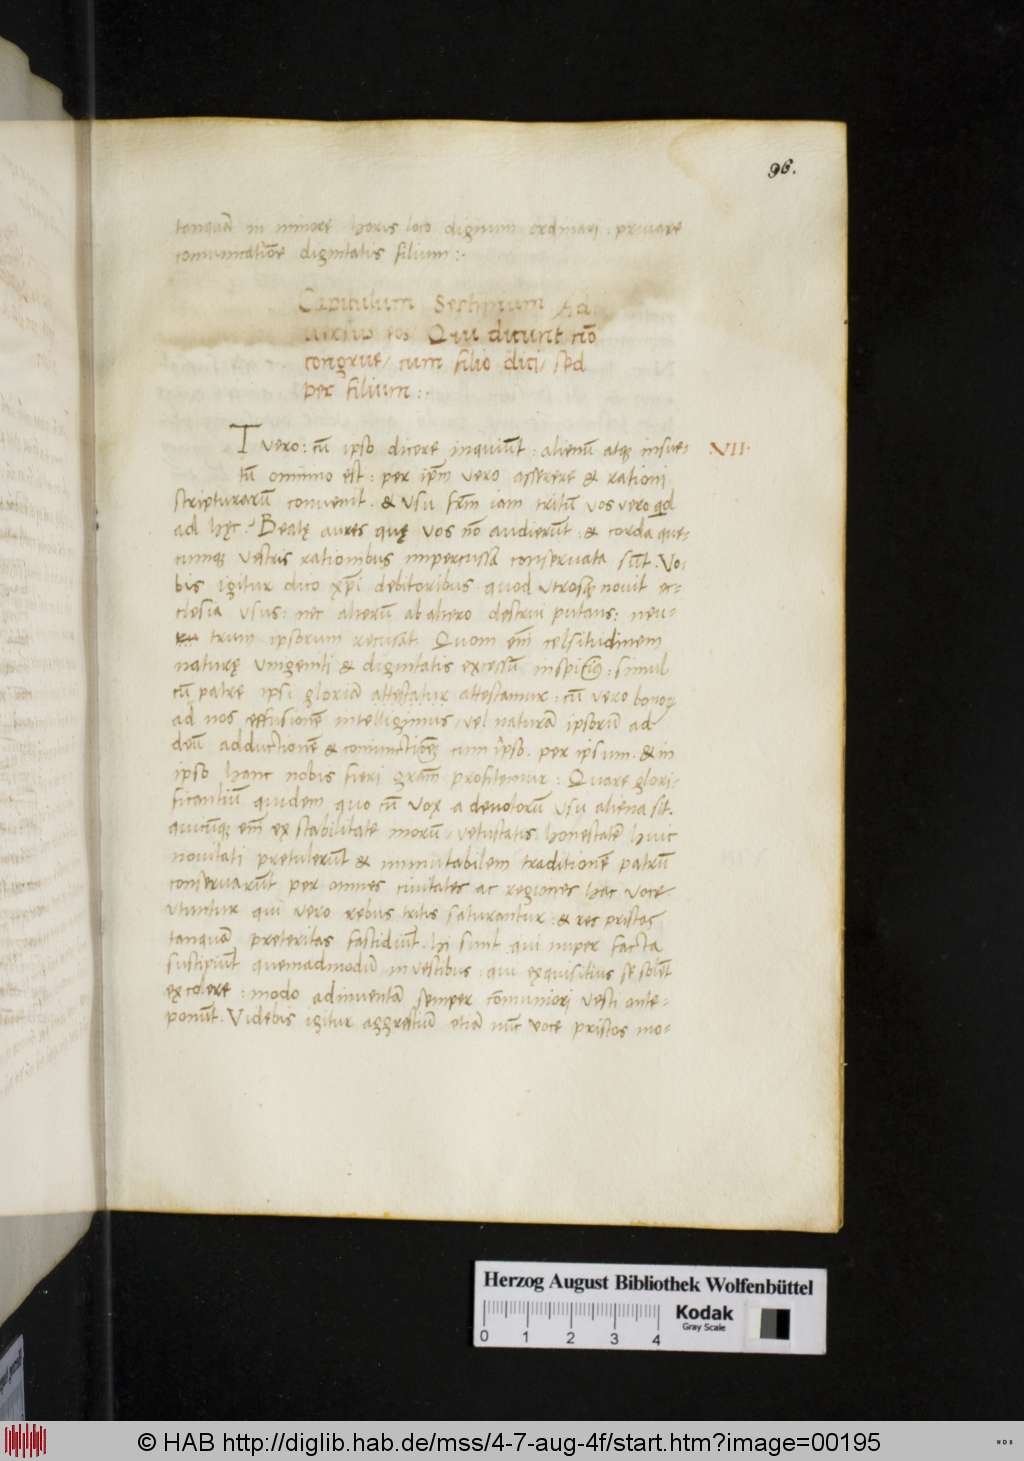 96.
tanquā in minore honoris loco dignum ordinari. privare
comunicatiōe dignitatis filium:.
Capitulum Septimum Ad
eos Qui dicunt nō
congrue/ cum filio dici/ sed
per filium:.
T vero: cū ipso dicere inquiūt: alienū atq; insue-
VII.
tū omnino est: per ip̄m vero asserere & rationi
scripturarū convenit. & usu fr̄m iam tritū vos vero qd
ad hęc. Beatę aures quę vos nō audierūt: & corda que-
cunq; vestris rationibus impercussa conservata sūt. Vo-
bis igitur dico xp̄i debitoribus quod utrosq; novit ec-
clesia usus: nec alterū ab altero destrui putans: neu-
trum ipsorum recusāt. Quom em̄ celsitudinem
naturę unigeniti & dignitatis excessū inspi simul
cū patre ipsi gloriā attestatur attestamur: cū vero bonoꝝ
ad nos effusionē intelligimus/ vel naturā ipsorū ad
deū adductionē & coniunctionē cum ipso. per ipsum. & in
ipso hanc nobis fieri gr̄am profitemur: Quare glori-
ficantiū quidem quo cū vox a devotorū usu aliena sit.
quicūq; em̄ ex stabilitate morū/ vetustatis honestatē huic
novitati pretulerūt & immutabilem traditionē patrū
conservarūt per omnes civitates ac regiones hac voce
utuntur qui vero rebus tritis saturantur: & res pristas
tanquā preteritas fastidiūt. hi sunt qui nuper facta
suscipiūt quemadmodū in vestibus: qui exquisitius se solēt
excolere: modo adinventā semper cōmuniori vesti ante-
ponūt. Videbis igitur aggrestiū etiā nūc voce pristos mo-
Herzog August Bibliothek Wolfenbüttel
Kodak
Gray Scale
0 1 2 3 4
© HAB http://diglib.hab.de/mss/4-7-aug-4f/start.htm?image=00195